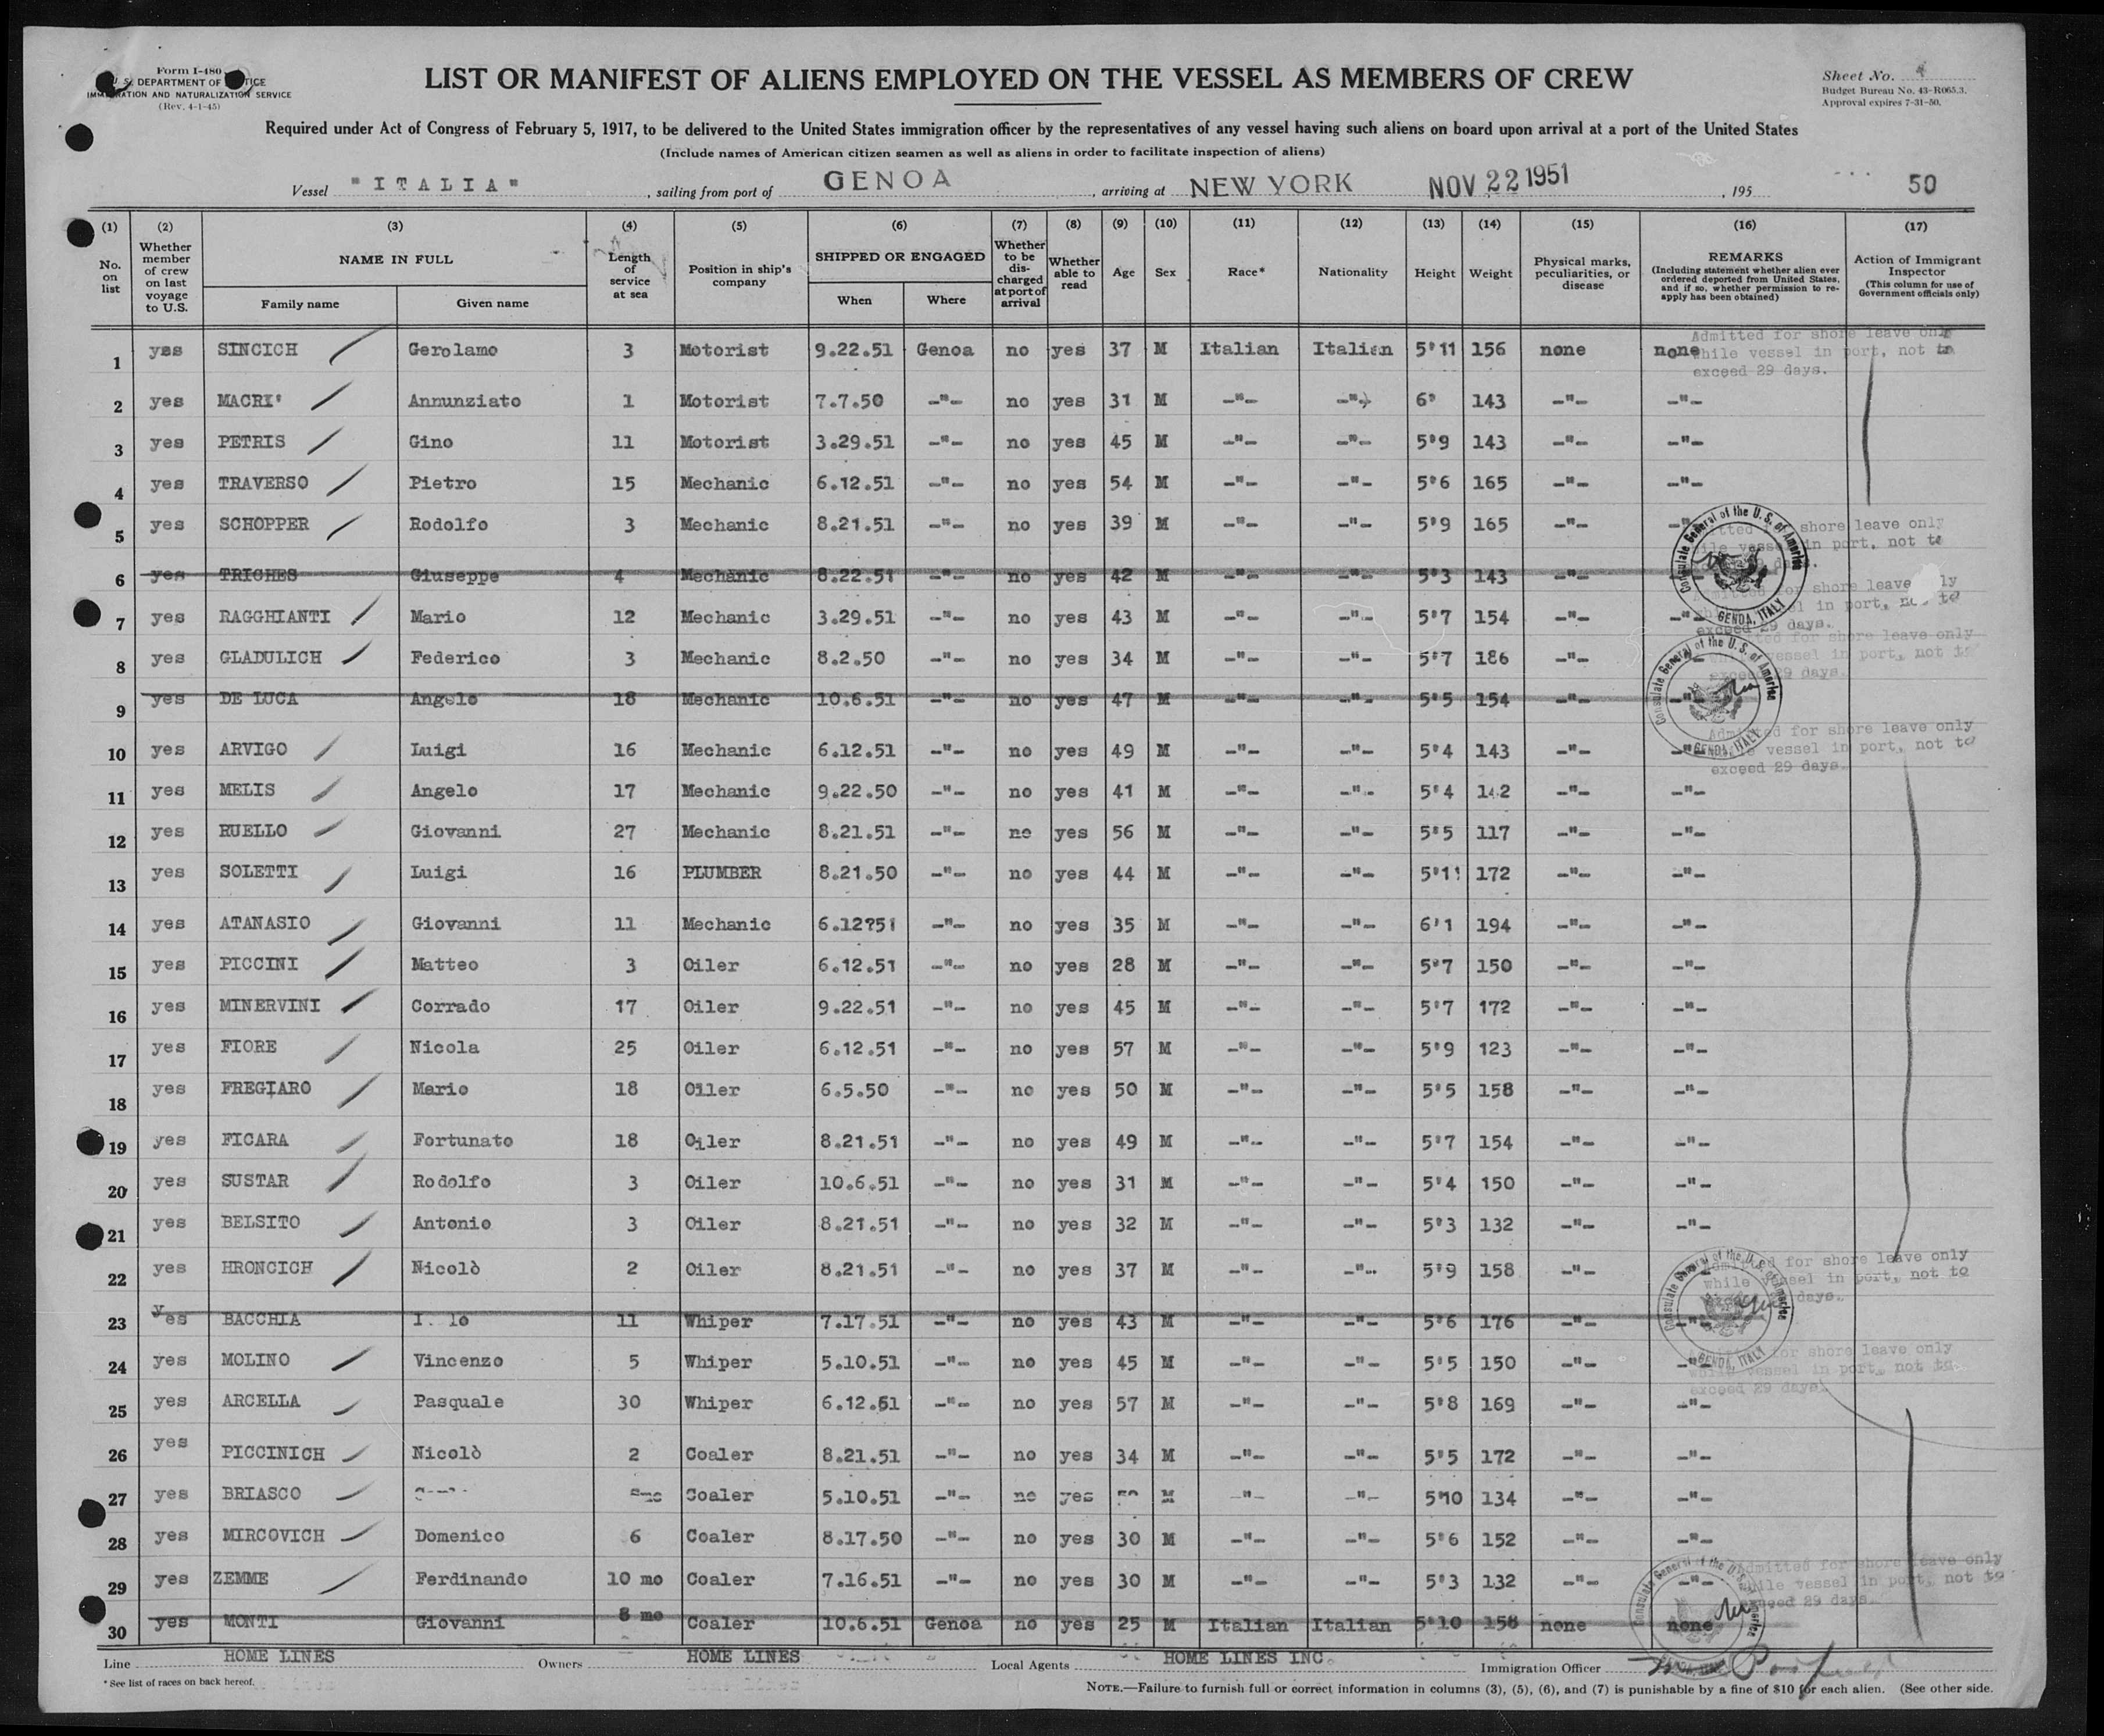 Form I-480
U. S. DEPARTMENT OF JUSTICE
IMMIGRATION AND NATURALIZATION SERVICE
(Rev. 4-1-45)
LIST OR MANIFEST OF ALIENS EMPLOYED ON THE VESSEL AS MEMBERS OF CREW
Sheet No. 4
Budget Bureau No. 43-R065.3.
Approval expires 7-31-50.
Required under Act of Congress of February 5, 1917, to be delivered to the United States immigration officer by the representatives of any vessel having such aliens on board upon arrival at a port of the United States
(Include names of American citizen seamen as well as aliens in order to facilitate inspection of aliens)
Vessel "ITALIA", sailing from port of GENOA, arriving at NEW YORK NOV 22 1951, 195 50
(1) (2) (3) (4) (5) (6) (7) (8) (9) (10) (11) (12) (13) (14) (15) (16) (17)
No. on list
Whether member of crew on last voyage to U.S.
NAME IN FULL
Family name
Given name
Length of service at sea
Position in ship's company
SHIPPED OR ENGAGED
When
Where
Whether to be discharged at port of arrival
Whether able to read
Age
Sex
Race*
Nationality
Height
Weight
Physical marks, peculiarities, or disease
REMARKS
(Including statement whether alien ever ordered deported from United States, and if so, whether permission to reapply has been obtained)
Action of Immigrant Inspector
(This column for use of Government officials only)
1 yes SINCICH Gerolamo 3 Motorist 9.22.51 Genoa no yes 37 M Italian Italian 5'11 156 none none
Admitted for shore leave only
while vessel in port, not to
exceed 29 days.
2 yes MACRI' Annunziato 1 Motorist 7.7.50 -"- no yes 31 M -"- -"- 6" 143 -"- -"-
3 yes PETRIS Gino 11 Motorist 3.29.51 -"- no yes 45 M -"- -"- 5'9 143 -"- -"-
4 yes TRAVERSO Pietro 15 Mechanic 6.12.51 -"- no yes 54 M -"- -"- 5'6 165 -"- -"-
5 yes SCHOPPER Rodolfo 3 Mechanic 8.21.51 -"- no yes 39 M -"- -"- 5'9 165 -"- -"-
Admitted for shore leave only
while vessel in port, not to
Consulate General of the U. S. of America
GENOA, ITALY
6 yes TRICHES Giuseppe 4 Mechanic 8.22.51 -"- no yes 42 M -"- -"- 5'3 143 -"-
Admitted for shore leave only
while vessel in port, not to
exceed 29 days.
7 yes RAGGHIANTI Mario 12 Mechanic 3.29.51 -"- no yes 43 M -"- -"- 5'7 154 -"- -"-
8 yes GLADULICH Federico 3 Mechanic 8.2.50 -"- no yes 34 M -"- -"- 5'7 186 -"- -"-
Admitted for shore leave only
while vessel in port, not to
exceed 29 days.
Consulate General of the U. S. of America
GENOA, ITALY
9 yes DE LUCA Angelo 18 Mechanic 10.6.51 -"- no yes 47 M -"- -"- 5'5 154 -"- -"-
10 yes ARVIGO Luigi 16 Mechanic 6.12.51 -"- no yes 49 M -"- -"- 5'4 143 -"- -"-
Admitted for shore leave only
while vessel in port, not to
exceed 29 days.
11 yes MELIS Angelo 17 Mechanic 9.22.50 -"- no yes 41 M -"- -"- 5'4 142 -"- -"-
12 yes RUELLO Giovanni 27 Mechanic 8.21.51 -"- no yes 56 M -"- -"- 5'5 117 -"- -"-
13 yes SOLETTI Luigi 16 PLUMBER 8.21.50 -"- no yes 44 M -"- -"- 5'11 172 -"- -"-
14 yes ATANASIO Giovanni 11 Mechanic 6.12?51 -"- no yes 35 M -"- -"- 6'1 194 -"- -"-
15 yes PICCINI Matteo 3 Oiler 6.12.51 -"- no yes 28 M -"- -"- 5'7 150 -"- -"-
16 yes MINERVINI Corrado 17 Oiler 9.22.51 -"- no yes 45 M -"- -"- 5'7 172 -"- -"-
17 yes FIORE Nicola 25 Oiler 6.12.51 -"- no yes 57 M -"- -"- 5'9 123 -"- -"-
18 yes FREGIARO Mario 18 Oiler 6.5.50 -"- no yes 50 M -"- -"- 5'5 158 -"- -"-
19 yes FICARA Fortunato 18 Oiler 8.21.51 -"- no yes 49 M -"- -"- 5'7 154 -"- -"-
20 yes SUSTAR Rodolfo 3 Oiler 10.6.51 -"- no yes 31 M -"- -"- 5'4 150 -"- -"-
21 yes BELSITO Antonio 3 Oiler 8.21.51 -"- no yes 32 M -"- -"- 5'3 132 -"- -"-
22 yes HRONCICH Nicolò 2 Oiler 8.21.51 -"- no yes 37 M -"- -"- 5'9 158 -"-
Admitted for shore leave only
while vessel in port, not to
exceed days.
Consulate General of the U. S. of America
GENOA, ITALY
23 yes BACCHIA 11 Whiper 7.17.51 -"- no yes 43 M -"- -"- 5'6 176 -"- -"-
24 yes MOLINO Vincenzo 5 Whiper 5.10.51 -"- no yes 45 M -"- -"- 5'5 150 -"- -"-
for shore leave only
while vessel in port, not to
exceed 29 days.
25 yes ARCELLA Pasquale 30 Whiper 6.12.51 -"- no yes 57 M -"- -"- 5'8 169 -"- -"-
26 yes PICCINICH Nicolò 2 Coaler 8.21.51 -"- no yes 34 M -"- -"- 5'5 172 -"- -"-
27 yes BRIASCO Coaler 5.10.51 -"- no yes M -"- -"- 5'10 134 -"- -"-
28 yes MIRCOVICH Domenico 6 Coaler 8.17.50 -"- no yes 30 M -"- -"- 5'6 152 -"- -"-
29 yes ZEMME Ferdinando 10 mo Coaler 7.16.51 -"- no yes 30 M -"- -"- 5'3 132 -"- -"-
Admitted for shore leave only
while vessel in port, not to
exceed 29 days.
Consulate General of the U. S. of America
GENOA, ITALY
30 yes MONTI Giovanni 8 mo Coaler 10.6.51 Genoa no yes 25 M Italian Italian 5'10 158 none none
Line HOME LINES Owners HOME LINES Local Agents HOME LINES INC. Immigration Officer
* See list of races on back hereof.
NOTE.—Failure to furnish full or correct information in columns (3), (5), (6), and (7) is punishable by a fine of $10 for each alien. (See other side.